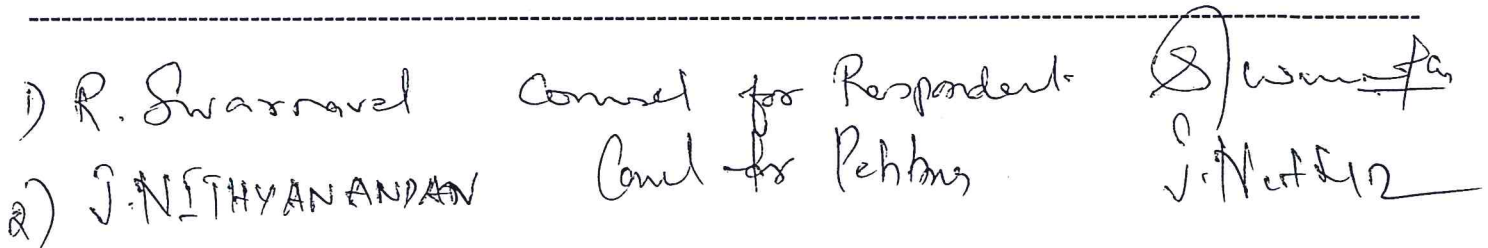 1) R. Swarnavel Counsel for Respondent
2) J. NITHYANANDAN Counsel for Petitioner